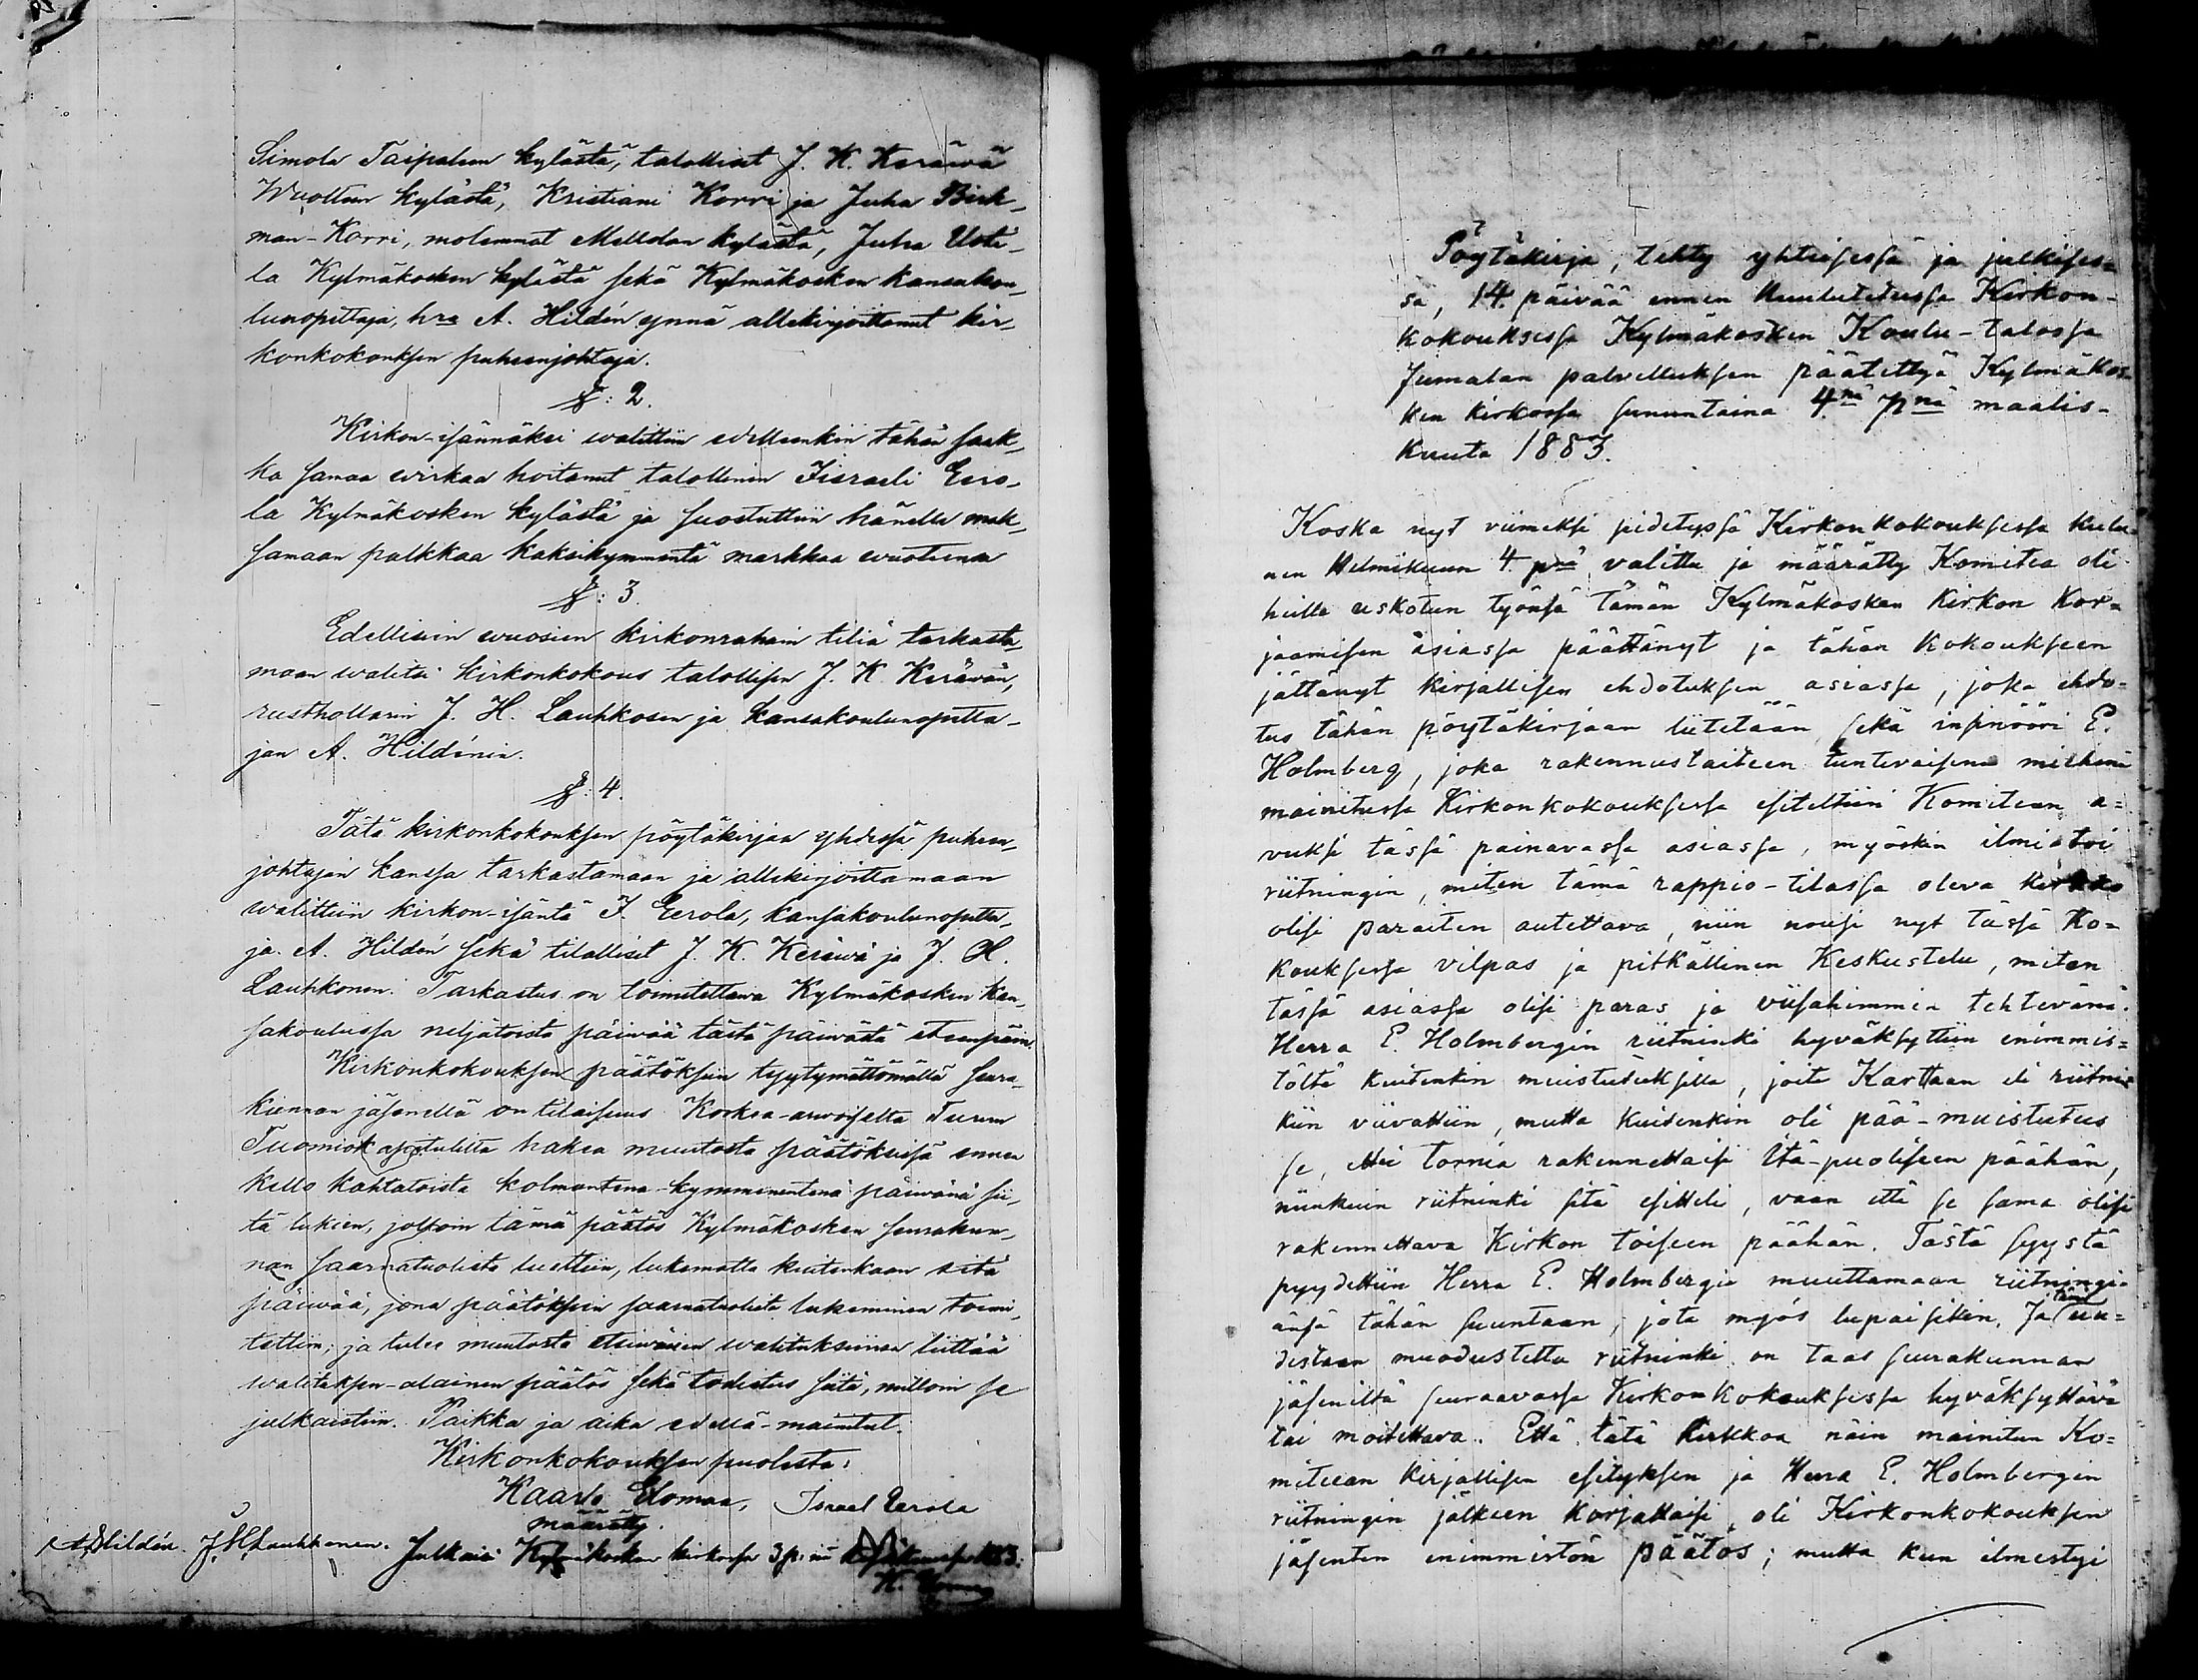 Simola Taipaleen kylästä, talolliset J. K. Keräwä
Wuolteen kylästä, Kristiani Korri ja Juha Birk-
man-Korri, molemmat Mellolan kylästä, Juha Uoti-
la Kylmäkosken kylästä sekä Kylmäkosken kansakou-
lunopettaja, hra A. Hildén ynnä allekirjoittanut kir-
konkokouksen puheenjohtaja.
§: 2.
Kirkon-isännäksi walittiin edelleenkin tähän saak-
ka samaa wirkaa hoitanut talollinen Iisraeli Eero-
la Kylmäkosken kylästä ja suostuttiin hänelle mak-
samaan palkkaa kaksikymmentä markkaa wuoteensa
§: 3.
Edellisein wuosien kirkonrahain tiliä tarkasta-
maan walitsi kirkonkokous talollisen J. K. Keräwän,
rusthollarin J. H. Lauhkosen ja kansakoulunopetta-
jan A. Hildénin.
§: 4.
Tätä kirkonkokouksen pöytäkirjaa yhdessä puheen-
johtajan kanssa tarkastamaan ja allekirjoittamaan
walittiin kirkon-isäntä I. Eerola, kansakoulunopetta-
ja A. Hildén sekä tilalliset J. K. Keräwä ja J. H.
Lauhkonen. Tarkastus on toimitettawa Kylmäkosken kan-
sakoulussa neljätoista päiwää tästä päiwästä eteenpäin.
Kirkonkokouksen päätöksiin tyytymättömällä seura-
kunnan jäsenellä on tilaisuus Korkea-arwoiselta Turun
Tuomiokapitulilta hakea muutosta päätöksissä ennen
kello kahtatoista kolmantena-kymmenentenä päiwänä sii-
tä lukien, jolloin tämä päätös Kylmäkosken seurakun-
nan saarnatuolista luettiin, lukematta kuitenkaan sitä
päiwää, jona päätöksen saarnatuolista lukeminen toimi-
tettiin; ja tulee muutosta etsiwäisen walitukseensa liittää
walituksen-alainen päätös sekä todistus siitä, milloin se
julkaistiin. Paikka ja aika edellä-mainitut.
Kirkonkokouksen puolesta:
Kaarlo Elomaa, Israel Eerola
määrätty.
A. Hildén. J. H. Lauhkonen. Julkaisi Kylmäkosken kirkossa 3 p:nä
Pöytäkirja, tehty yhteisessä ja julkises=
sa, 14 päivää ennen kuulutetussa Kirkon-
kokouksessa Kylmäkosken Koulu-talossa
Jumalan palvelluksen päätettyä Kylmäkos-
ken kirkossa sununtaina 4nä pnä maalis-
kuuta 1883.
Koska nyt viimeksi pidetyssä Kirkonkokouksessa kulu-
nen Helmikuun 4 pnä valittu ja määrätty Komitea oli
heille uskotun työnsä tämän Kylmäkosken kirkon kor=
jaamisen asiassa päättänyt ja tähän kokoukseen
jättänyt kirjallisen ehdotuksen asiassa, joka ehdo=
tus tähän pöytäkirjaan liitetään sekä insinööri E.
Holmberg, joka rakennustaiteen tuntevaisena miehenä
mainitussa Kirkonkokouksessa esitettiin Komitean a=
vuksi tässä painavassa asiassa, myöskin ilmi toi
riitningin, miten tämä rappio-tilassa oleva kirkko
olisi paraiten autettava, niin nousi nyt tässä Ko=
kouksessa vilpas ja pitkällinen keskustelu, miten
tässä asiassa olisi paras ja viisahimmin tehtevänä.
Herra E. Holmbergin riitninki hyväksyttiin enimmis=
töltä kuitenkin muistutuksilla, joita Karttaan eli riitnin
kiin viivattiin, mutta kuitenkin oli pää-muistutus
se, ettei tornia rakennettaisi Itä-puoliseen päähän,
niinkuin riitninki sitä esitteli, vaan että se sama olisi
rakennettava Kirkon toiseen päähän. Tästä syystä
pyydettiin Herra E. Holmbergia muuttamaan riitningi-
änsä tähän suuntaan, jota myös lupaisikin. Ja tämä uu=
destaan muodustettu riitninki on taas seurakunnan
jäseniltä seuraavassa Kirkonkokouksessa hyväksyttävä
tai moitittava. Että tätä kirkkoa näin mainitun Ko=
mitean kirjallisen esityksen ja Herra E. Holmbergin
riitningin jälkeen korjattaisi, oli Kirkonkokouksen
jäsenten enimmistön päätös; mutta kun ilmestyi